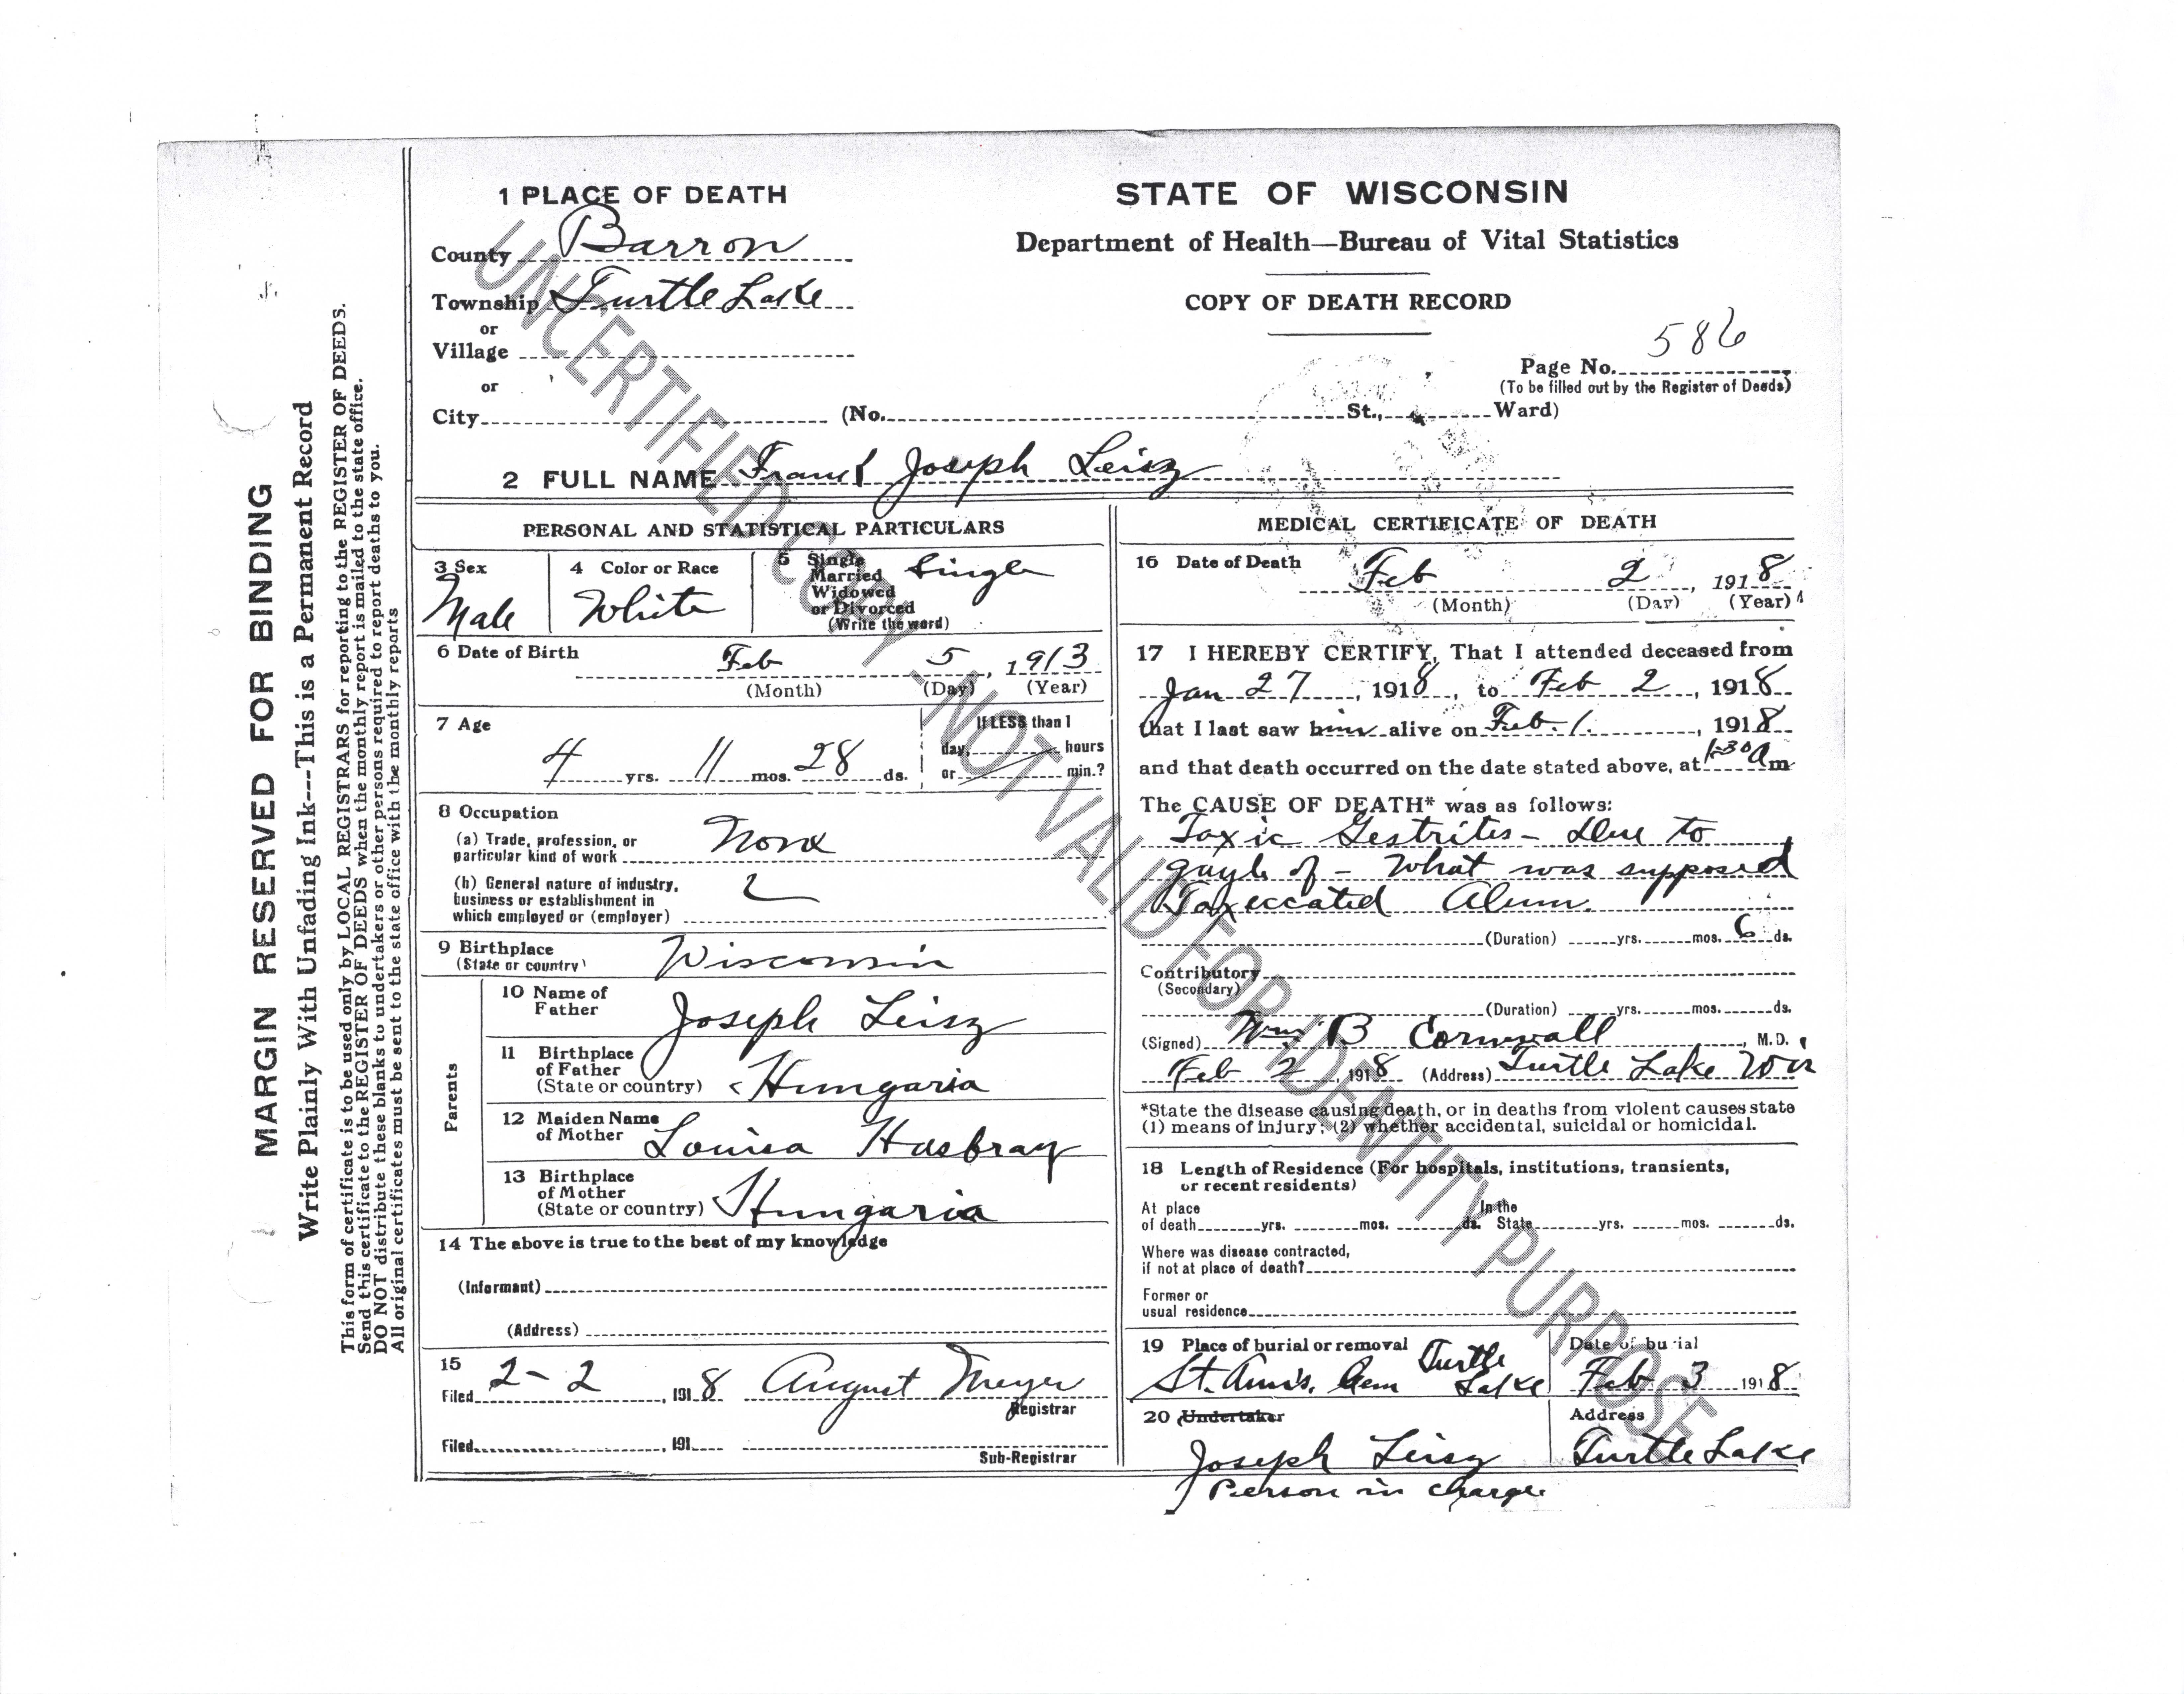 1 PLACE OF DEATH
County Barron
Township Turtle Lake
or
Village
or
City (No. St., Ward)
STATE OF WISCONSIN
Department of Health—Bureau of Vital Statistics
COPY OF DEATH RECORD
586
Page No.
(To be filled out by the Register of Deeds)
2 FULL NAME Frank Joseph Leisz
PERSONAL AND STATISTICAL PARTICULARS
3 Sex
Male
4 Color or Race
White
5 Single
Married
Widowed
or Divorced
(Write the word)
Single
6 Date of Birth
Feb 5, 1913
(Month) (Day) (Year)
7 Age
4 yrs. 11 mos. 28 ds.
If LESS than 1
day, hours
or min.?
8 Occupation
(a) Trade, profession, or
particular kind of work None
(b) General nature of industry,
business or establishment in
which employed or (employer)
9 Birthplace
(State or country) Wisconsin
Parents
10 Name of
Father Joseph Leisz
11 Birthplace
of Father
(State or country) Hungaria
12 Maiden Name
of Mother Louisa Hasbray
13 Birthplace
of Mother
(State or country) Hungaria
14 The above is true to the best of my knowledge
(Informant)
(Address)
15
Filed 2-2, 1918 August Meyer
Registrar
Filed, 191
Sub-Registrar
MEDICAL CERTIFICATE OF DEATH
16 Date of Death
Feb 2, 1918
(Month) (Day) (Year)
17 I HEREBY CERTIFY, That I attended deceased from
Jan 27, 1918, to Feb 2, 1918
that I last saw him alive on Feb. 1, 1918
and that death occurred on the date stated above, at 1-30 a m
The CAUSE OF DEATH* was as follows:
Toxic Gestrites - Due to
of - What was supposed
Alum.
(Duration) yrs. mos. 6 ds.
Contributory
(Secondary)
(Duration) yrs. mos. ds.
(Signed) Wm B Cornwall, M.D.
Feb 2, 1918 (Address) Turtle Lake Wis
*State the disease causing death, or in deaths from violent causes state
(1) means of injury; (2) whether accidental, suicidal or homicidal.
18 Length of Residence (For hospitals, institutions, transients,
or recent residents)
At place
of death yrs. mos. ds.
In the
State yrs. mos. ds.
Where was disease contracted,
if not at place of death?
Former or
usual residence
19 Place of burial or removal
St. Ann's. Cem Turtle Lake
Date of burial
Feb 3 1918
20 Undertaker
Joseph Leisz
Person in charge
Address
Turtle Lake
MARGIN RESERVED FOR BINDING
Write Plainly With Unfading Ink---This is a Permanent Record
This form of certificate is to be used only by LOCAL REGISTRARS for reporting to the REGISTER OF DEEDS.
Send this certificate to the REGISTER OF DEEDS when the monthly report is mailed to the state office.
DO NOT distribute these blanks to undertakers or other persons required to report deaths to you.
All original certificates must be sent to the state office with the monthly reports
UNCERTIFIED COPY - NOT VALID FOR IDENTITY PURPOSE